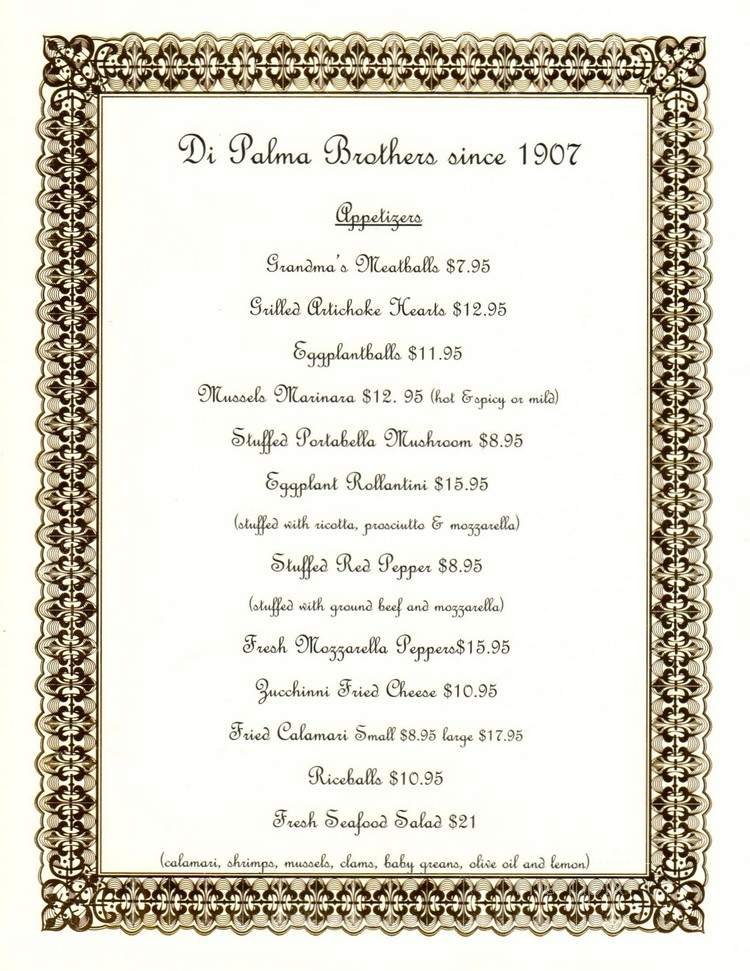 Di Palma Brothers since 1907
Appetizers
Grandma's Meatballs $7.95
Grilled Artichoke Hearts $12.95
Eggplantballs $11.95
Mussels Marinara $12. 95 (hot &spicy or mild)
Stuffed Portabella Mushroom $8.95
Eggplant Rollantini $15.95
(stuffed with ricotta, prosciutto & mozzarella)
Stuffed Red Pepper $8.95
(stuffed with ground beef and mozzarella)
Fresh Mozzarella Peppers$15.95
Zucchinni Fried Cheese $10.95
Fried Calamari Small $8.95 large $17.95
Riceballs $10.95
Fresh Seafood Salad $21
(calamari, shrimps, mussels, clams, baby greans, olive oil and lemon)